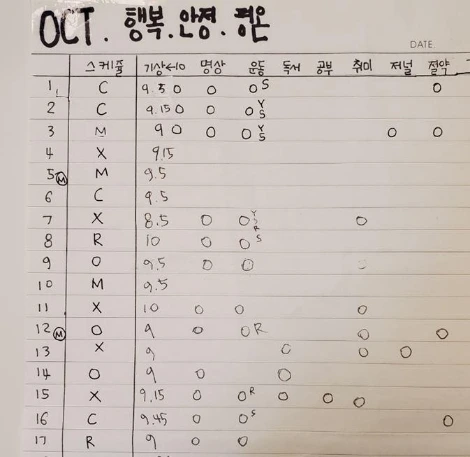 OCT. 행복. 안정. 평온
DATE
스케줄 기상←10 명상 운동 독서 공부 취미 저널 절약
1 C 9.5 O O O S O
2 C 9.15 O O O Y S
3 M 9 O O O Y S O O
4 X 9.15
5 M M 9.5
6 C 9.5
7 X 8.5 O O Y S R O
8 R 10 O O S
9 O 9.5 O O
10 M 9.5
11 X 10 O O O
12 M O 9 O O R O O
13 X 9 O O O
14 O 9 O O
15 X 9.15 O O R O O O
16 C 9.45 O O S O
17 R 9 O O